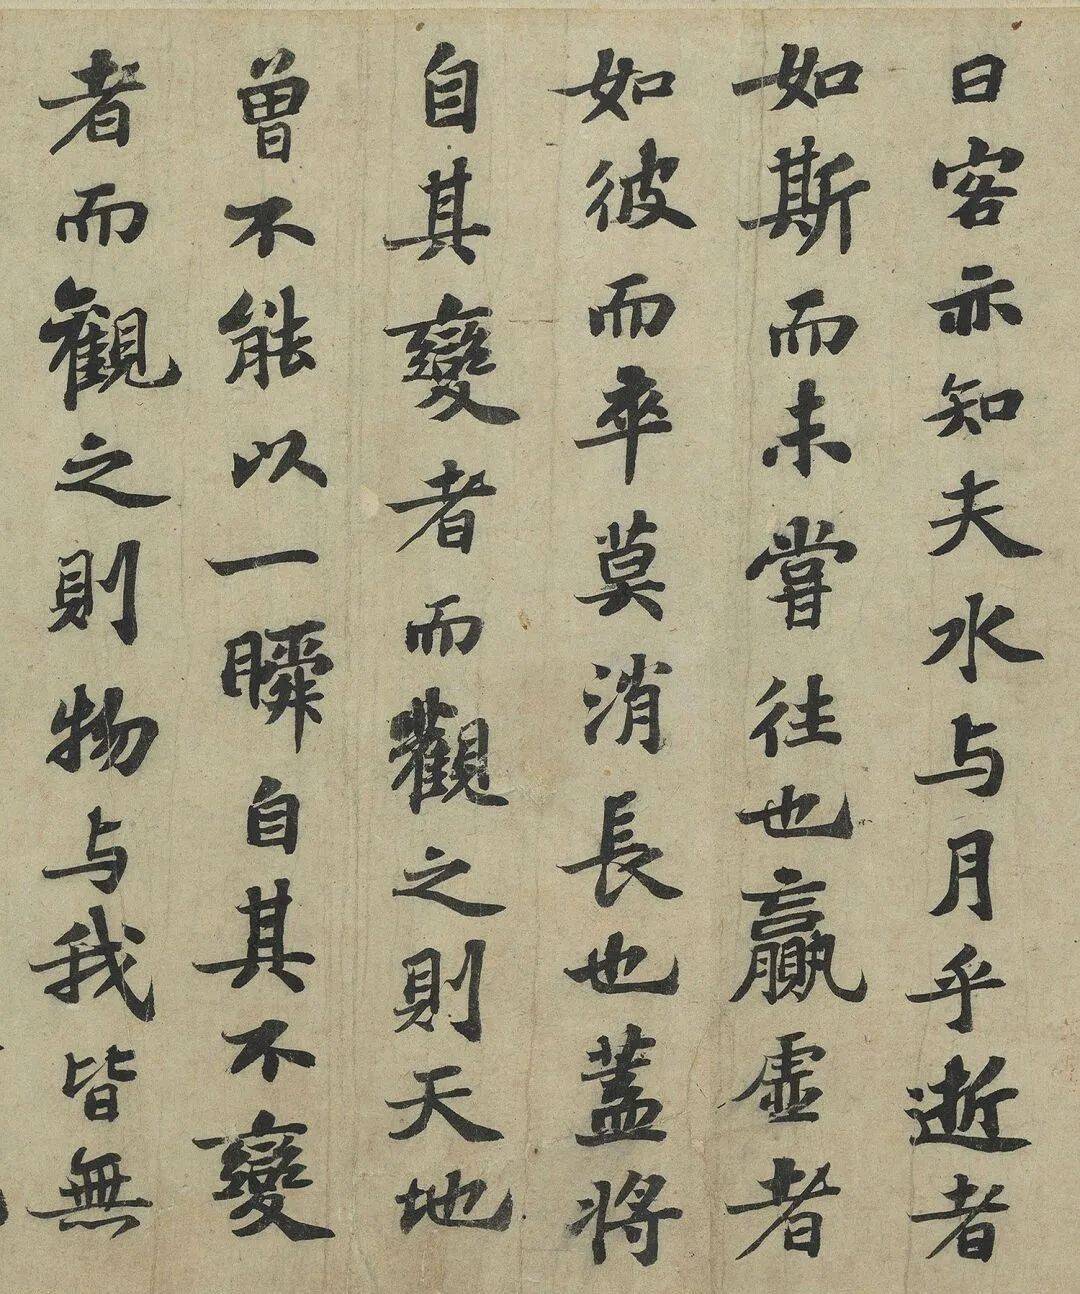 曰客亦知夫水与月乎逝者
如斯而未嘗往也贏虛者
如彼而卒莫消長也蓋將
自其變者而觀之則天地
曾不能以一瞬自其不變
者而觀之則物与我皆無